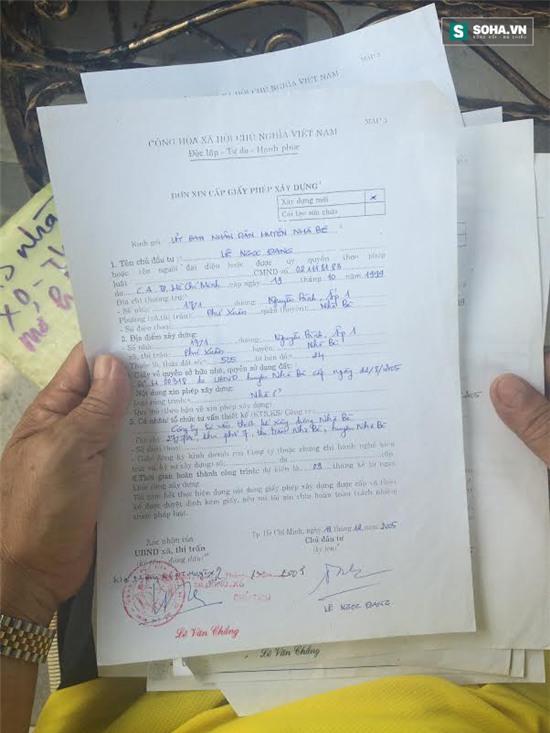 SOHA.VN
MẪU 3
XÃ HỘI CHỦ NGHĨA VIỆT NAM
MẪU 3
CỘNG HÒA XÃ HỘI CHỦ NGHĨA VIỆT NAM
Độc lập - Tự do - Hạnh phúc
ĐƠN XIN CẤP GIẤY PHÉP XÂY DỰNG
Xây dựng mới x
Cải tạo sửa chữa
Kính gởi: ỦY BAN NHÂN DÂN HUYỆN NHÀ BÈ
1. Tên chủ đầu tư: LÊ NGỌC ĐANG
hoặc tên người đại diện hoặc được ủy quyền theo pháp
luật CMND số
do C.A. TP. Hồ Chí Minh cấp ngày 19 tháng 10 1999
Địa chỉ thường trú:
- Số nhà: 17/1 đường: Nguyễn Bình, Ấp 1
Phường (xã, thị trấn): Phú Xuân quận (huyện): Nhà Bè
- Số điện thoại:
2. Địa điểm xây dựng:
- Số nhà: 17/1 đường: Nguyễn Bình, Ấp 1
xã, thị trấn: Phú Xuân huyện: Nhà Bè
Thuộc lô, thửa đất số: 525 tờ bản đồ: 24
Giấy về quyền sở hữu nhà, quyền sử dụng đất:
do UBND huyện Nhà Bè cấp ngày 22/8/2005
Nội dung xin phép xây dựng:
Nhà ở
5. Cá nhân, tổ chức tư vấn thiết kế
Công ty tư vấn thiết kế xây dựng Nhà Bè
khu phố 7, thị trấn Nhà Bè, huyện Nhà Bè
- Số điện thoại:
- Giấy đăng ký kinh doanh của công ty thuộc chứng chỉ hành nghề kiến
trúc và kỹ sư xây dựng số: do cấp
6. Thời gian hoàn thành công trình: dự kiến là 03 tháng kể từ ngày
khởi công xây dựng
Tôi cam kết thực hiện đúng nội dung giấy phép xây dựng được cấp và thiết
kế được duyệt đính kèm giấy, nếu sai tôi xin chịu hoàn toàn trách nhiệm
theo pháp luật.
Tp. Hồ Chí Minh, ngày 12 tháng 12 năm 2005
Xác nhận của
UBND xã, thị trấn
(ký tên, đóng dấu)
Chủ đầu tư
(ký tên)
2005
CHỦ TỊCH
Lê Văn Chẳng
LÊ NGỌC ĐANG
Lê Văn Chẳng